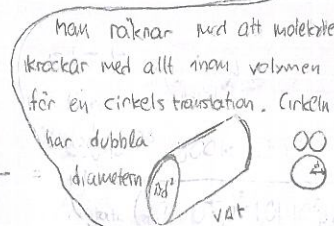 Man räknar med att molekylen
krockar med allt inom volymen
för en cirkels translation. Cirkeln
har dubbla
diametern
πd²
vΔt